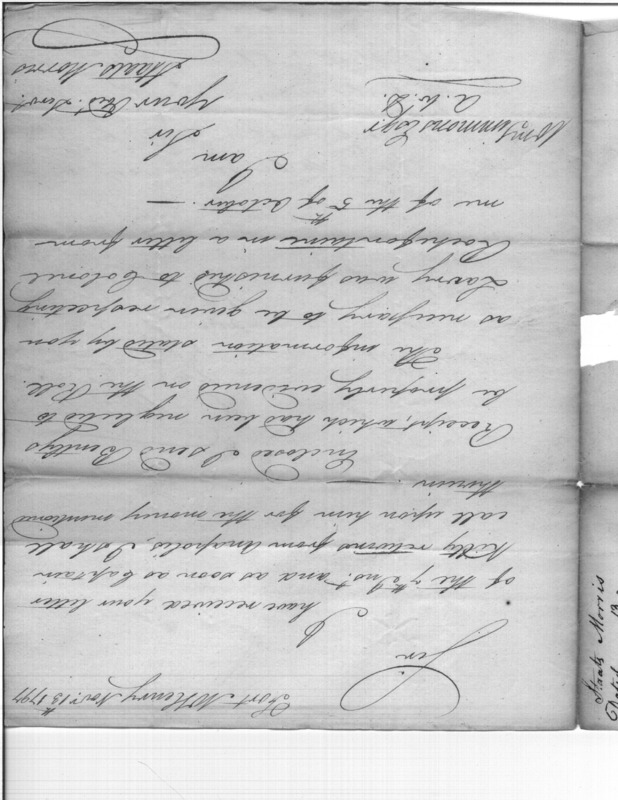 Fort McHenry Novr. 13th 1797
Sir
I
have received your letter
of the 7th Inst. and as soon as Captain
Kelty returns from Anapolis, I shall
call upon him for the money mentioned
therein —
Enclosed I send Bently's
Receipt, which had been neglected to
be properly evidenced on the Roll.
The information stated by you
as necessary to be given respecting
Lavry was furnished to Colonel
Rochefontaine in a letter from
me of the 5th of October. —
I am
Sir
your Obt. Servt.
Staats Morris
Wm. Simmons Esqr.
A. W. D.
Staats Morris